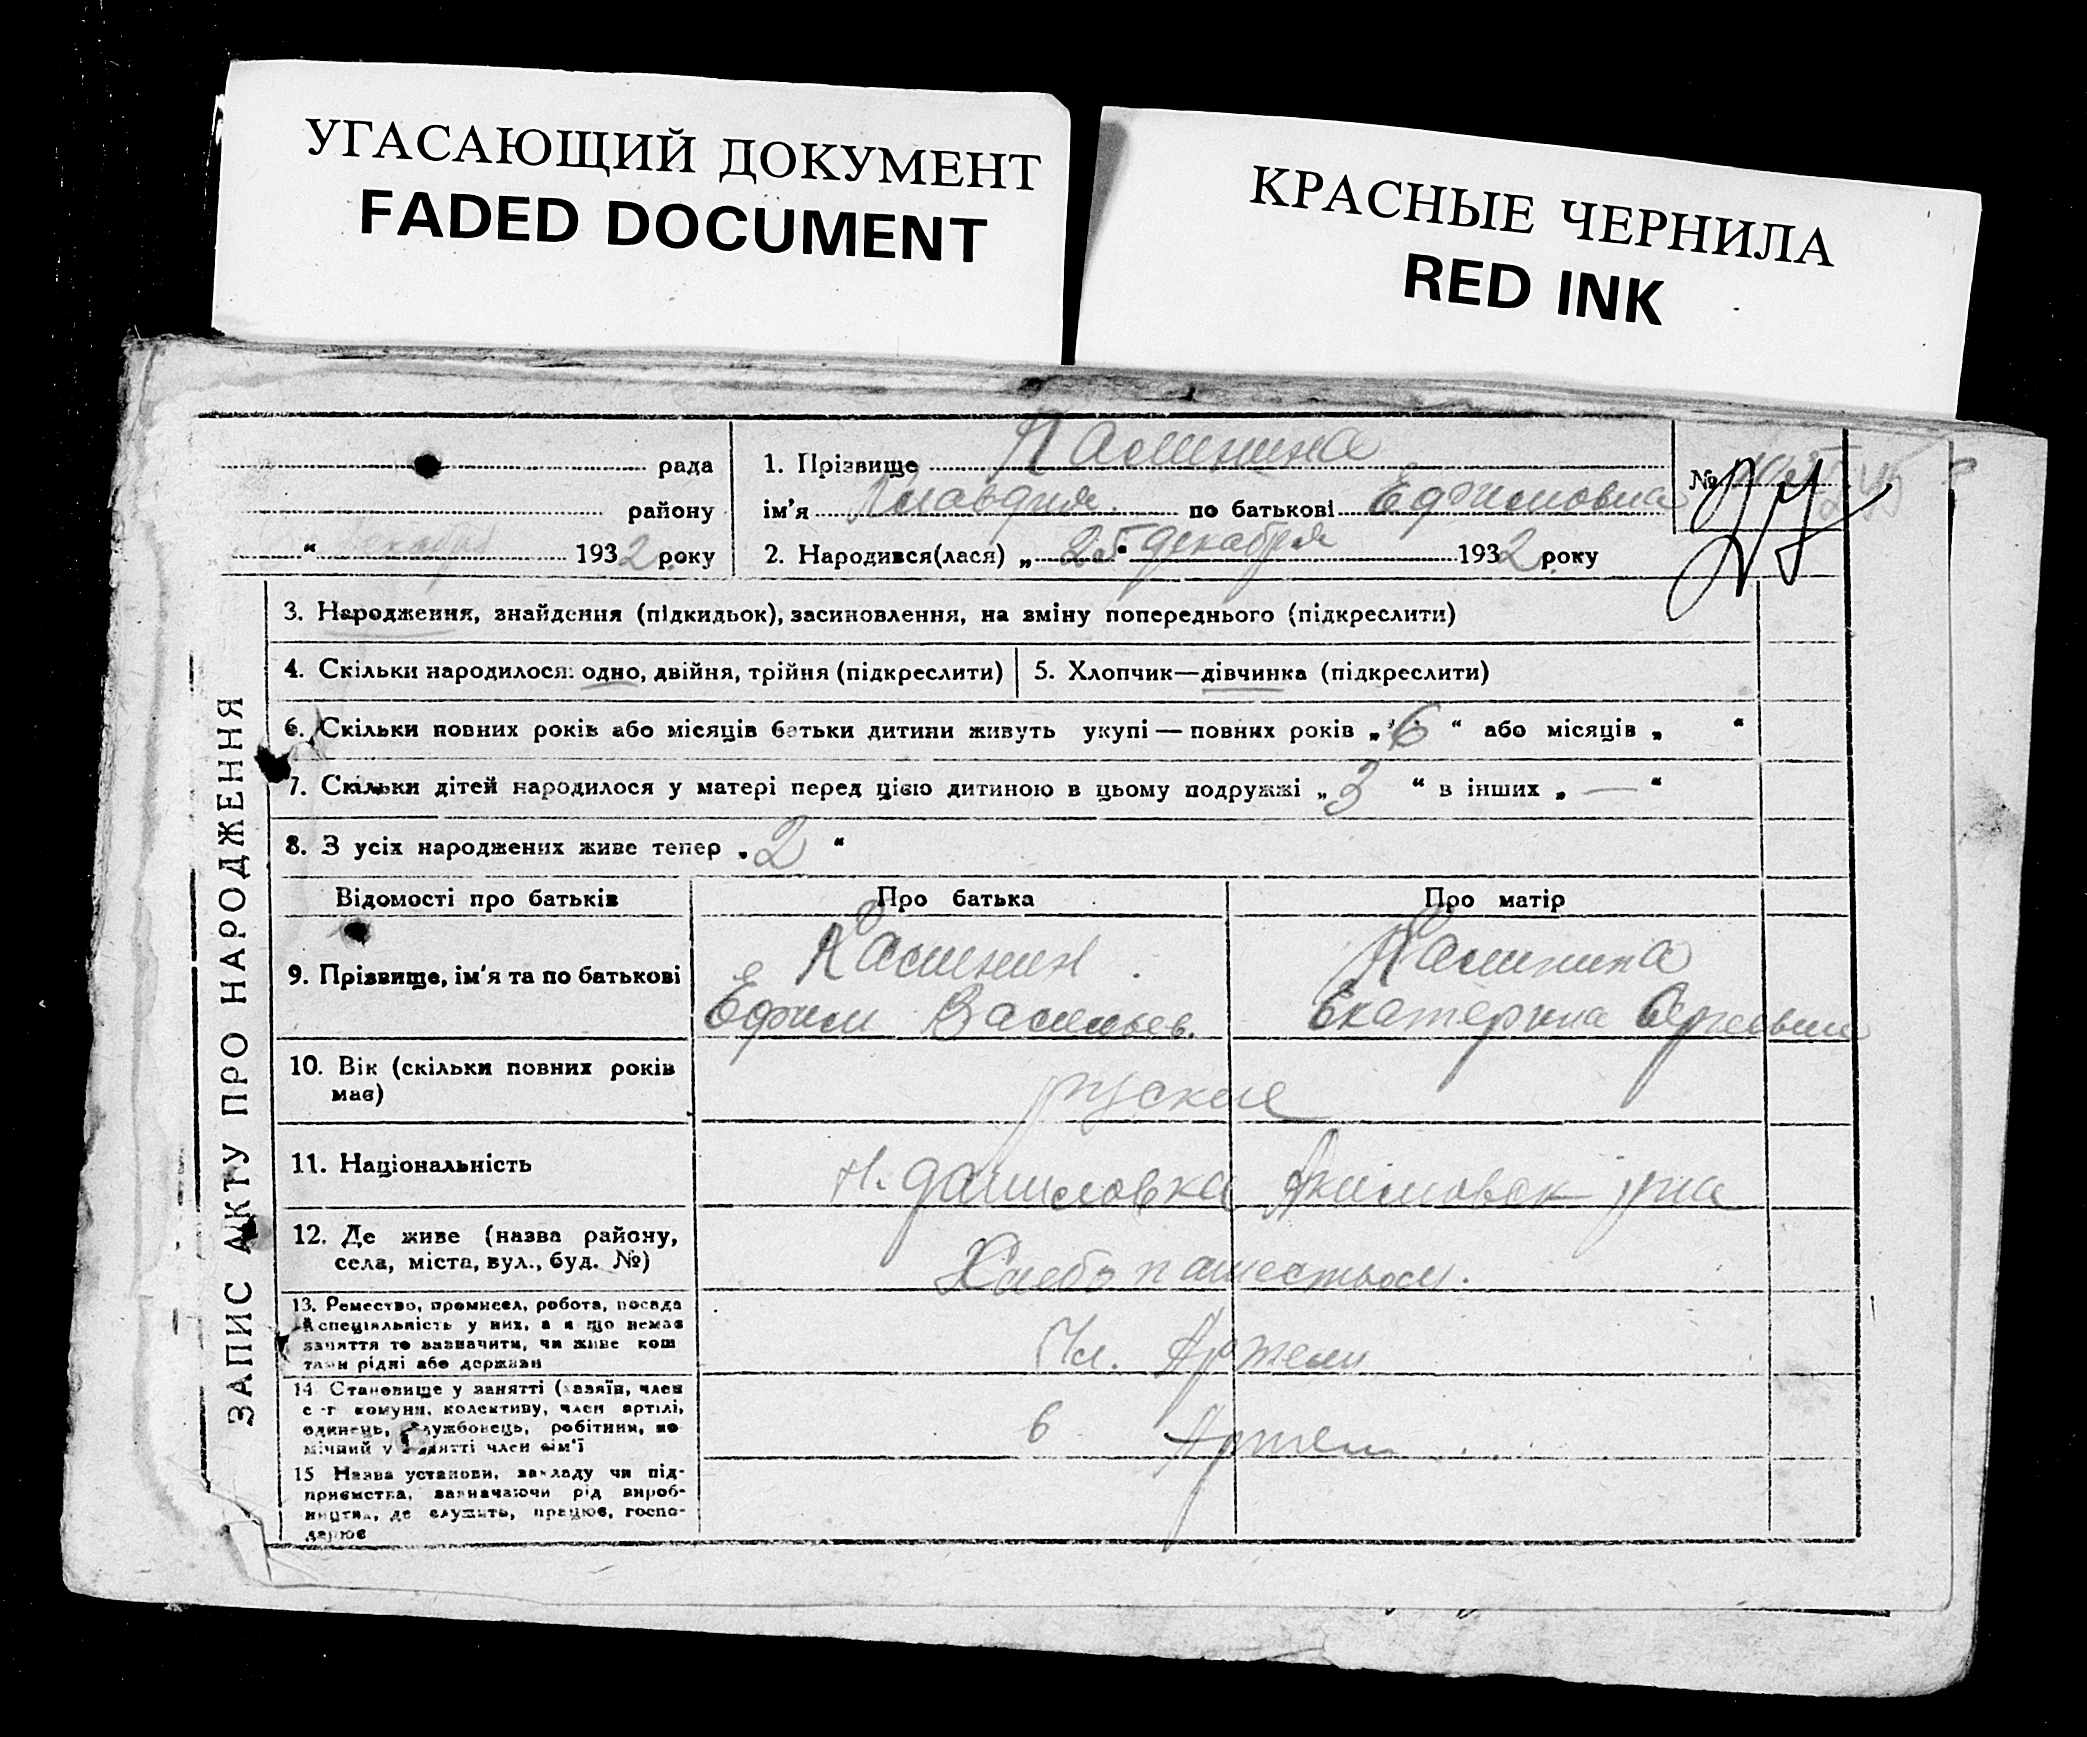 УГАСАЮЩИЙ ДОКУМЕНТ
FADED DOCUMENT
КРАСНЫЕ ЧЕРНИЛА
RED INK
рада
району
“ 1932 року
1. Прізвище Калинина
ім'я Клавдия по батькові Ефимовна
2. Народився(лася) „25“ декабря 1932 року
№
ЗАПИС АКТУ ПРО НАРОДЖЕННЯ
3. Народження, знайдення (підкидьок), засиновлення, на зміну попереднього (підкреслити)
4. Скільки народилося: одно, двійня, трійня (підкреслити)
5. Хлопчик—дівчинка (підкреслити)
6. Скільки повних років або місяців батьки дитини живуть укупі — повних років „6“ або місяців „ “
7. Скільки дітей народилося у матері перед цією дитиною в цьому подружжі „3“ в інших „—“
8. З усіх народжених живе тепер „2“
Відомості про батьків
Про батька
Про матір
9. Прізвище, ім'я та по батькові
Калинин
Ефим Васильев.
Калинина
Екатерина
10. Вік (скільки повних років
має)
руские
11. Національність
Н. Даниловка Акимовск рна
12. Де живе (назва району,
села, міста, вул., буд. №)
Хлебопашеством.
13. Ремество, промисел, робота, посада
й спеціяльність у них, а я що немає
заняття то зазначити, чи живе кош
тами рідні або держави
Чл. Артели
14 Становище у занятті (хазяїн, член
с-г комуни, колективу, член артілі,
одинець, службовець, робітник, по
мічний у занятті член сім'ї
в Артели
15 Назва установи, закладу чи під-
приємства, зазначаючи рід вироб-
ництва, де служить, працює, госпо-
дарює